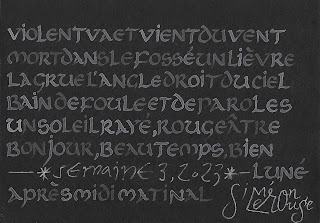 VIOLENT VA ET VIENT DU VENT
MORT DANS LE FOSSÉ UN LIÈVRE
LA GRUE L'ANGLE DROIT DU CIEL
BAIN DE FOULE ET DE PAROLES
UN SOLEIL RAYÉ, ROUGEÂTRE
BONJOUR, BEAU TEMPS, BIEN
— * SEMAINE 3, 2023 * — LUNÉ
APRÈS MIDI MATINAL